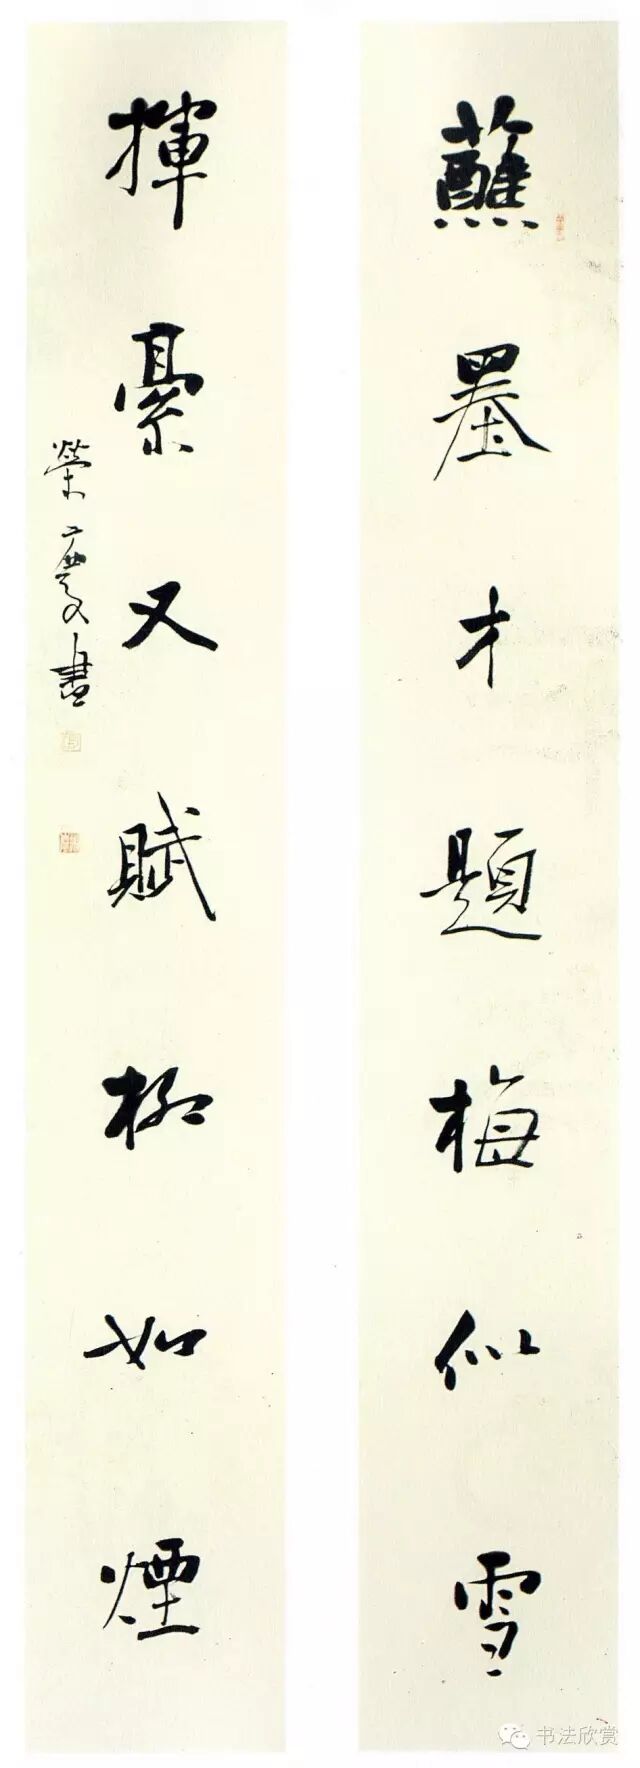 蘸墨才題梅似雪
揮豪又賦柳如煙
榮慶書
书法欣赏